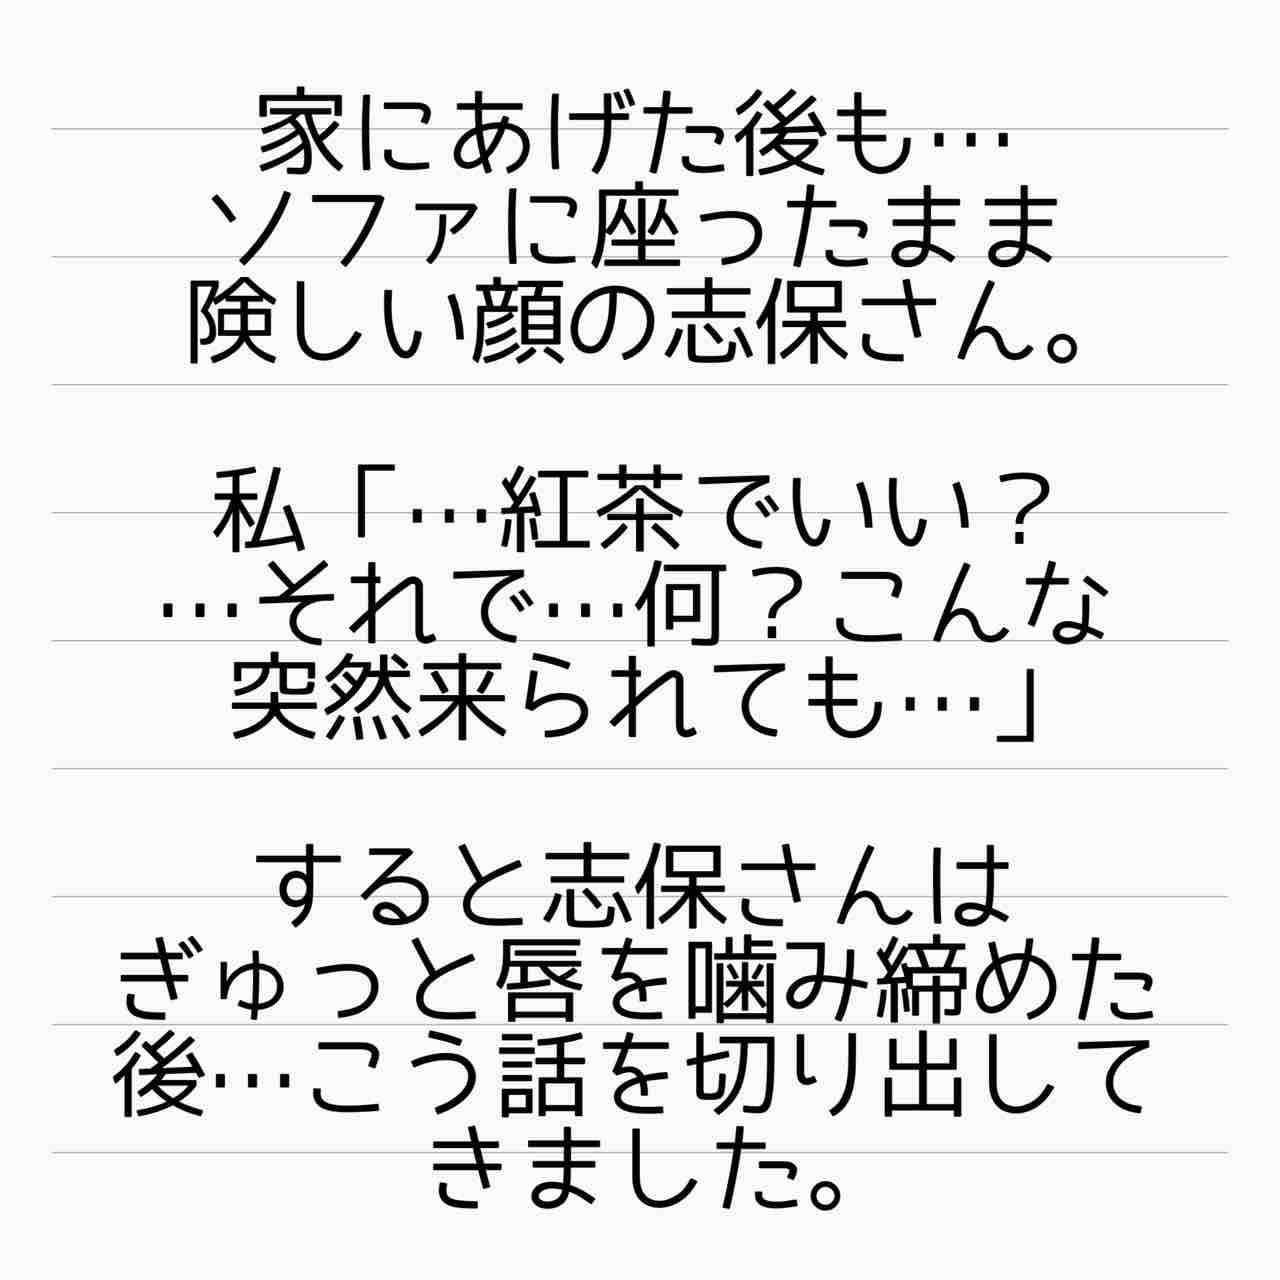 家にあげた後も…
ソファに座ったまま
険しい顔の志保さん。
私「…紅茶でいい？
…それで…何？こんな
突然来られても…」
すると志保さんは
ぎゅっと唇を噛み締めた
後…こう話を切り出して
きました。